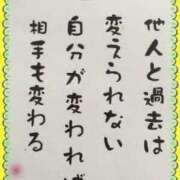 他人と過去は
変えられない
自分が変われば
相手も変わる